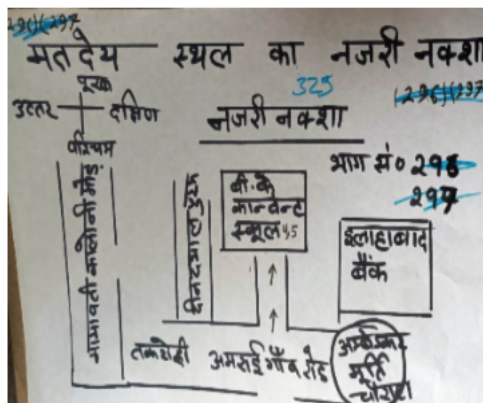 296)(297
मतदेय स्थल का नजरी नक्शा
325
(296)(297
पूरब
उत्तर दक्षिण
पश्चिम
नजरी नक्शा
भाग सं० 296
297
मायावती कालोनी मोड़
दीनदयाल पुरम
बी.के
कान्वेन्ट
स्कूल
इलाहाबाद
बैंक
तकरोही अमराई गाँव रोड
अम्बेडकर
मूर्ति
चौराहा